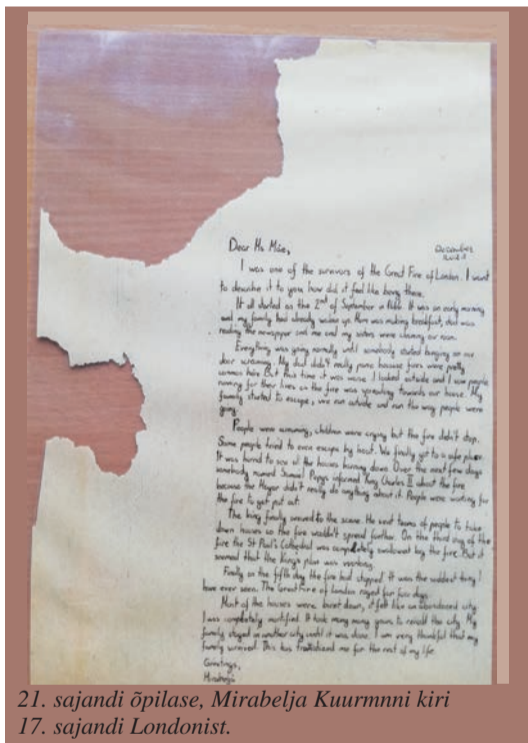 December
Dear Ms Miia,
I was one of the survivors of the Great Fire of London. I want
to describe it to you how did it feel like being there.
It all started on the 2nd of September in 1666. It was an early morning
and my family had already woken up. Mom was making breakfast, dad was
reading the newspaper and me and my sisters were cleaning our room.
Everything was going normally until somebody started banging on our
door screaming. My dad didn't really panic because fires were pretty
common here. But this time it was worse. I looked outside and I saw people
running for their lives as the fire was spreading towards our house. My
family started to escape, we ran outside and run the way people were
going.
People were screaming, children were crying but the fire didn't stop.
Some people tried to even escape by boat. We finally got to a safe place.
It was horrid to see all the houses burning down. Over the next few days
somebody named Samuel Pepys informed King Charles II about the fire
because the Mayor didn't really do anything about it. People were waiting for
the fire to get put out.
The king finally arrived to the scene. He sent teams of people to take
down houses so the fire wouldn't spread further. On the third day of the
fire the St Paul's Cathedral was completely swallowed by the fire. But it
seemed that the King's plan was working.
Finally on the fifth day the fire had stopped. It was the saddest thing I
have ever seen. The Great Fire of London raged for five days.
Most of the houses were burnt down, it felt like an abandoned city.
I was completely mortified. It took many many years to rebuild the city. My
family stayed in another city until it was done. I am very thankful that my
family survived. This has traumatized me for the rest of my life.
Greetings,
Mirabelja
21. sajandi õpilase, Mirabelja Kuurmnni kiri
17. sajandi Londonist.